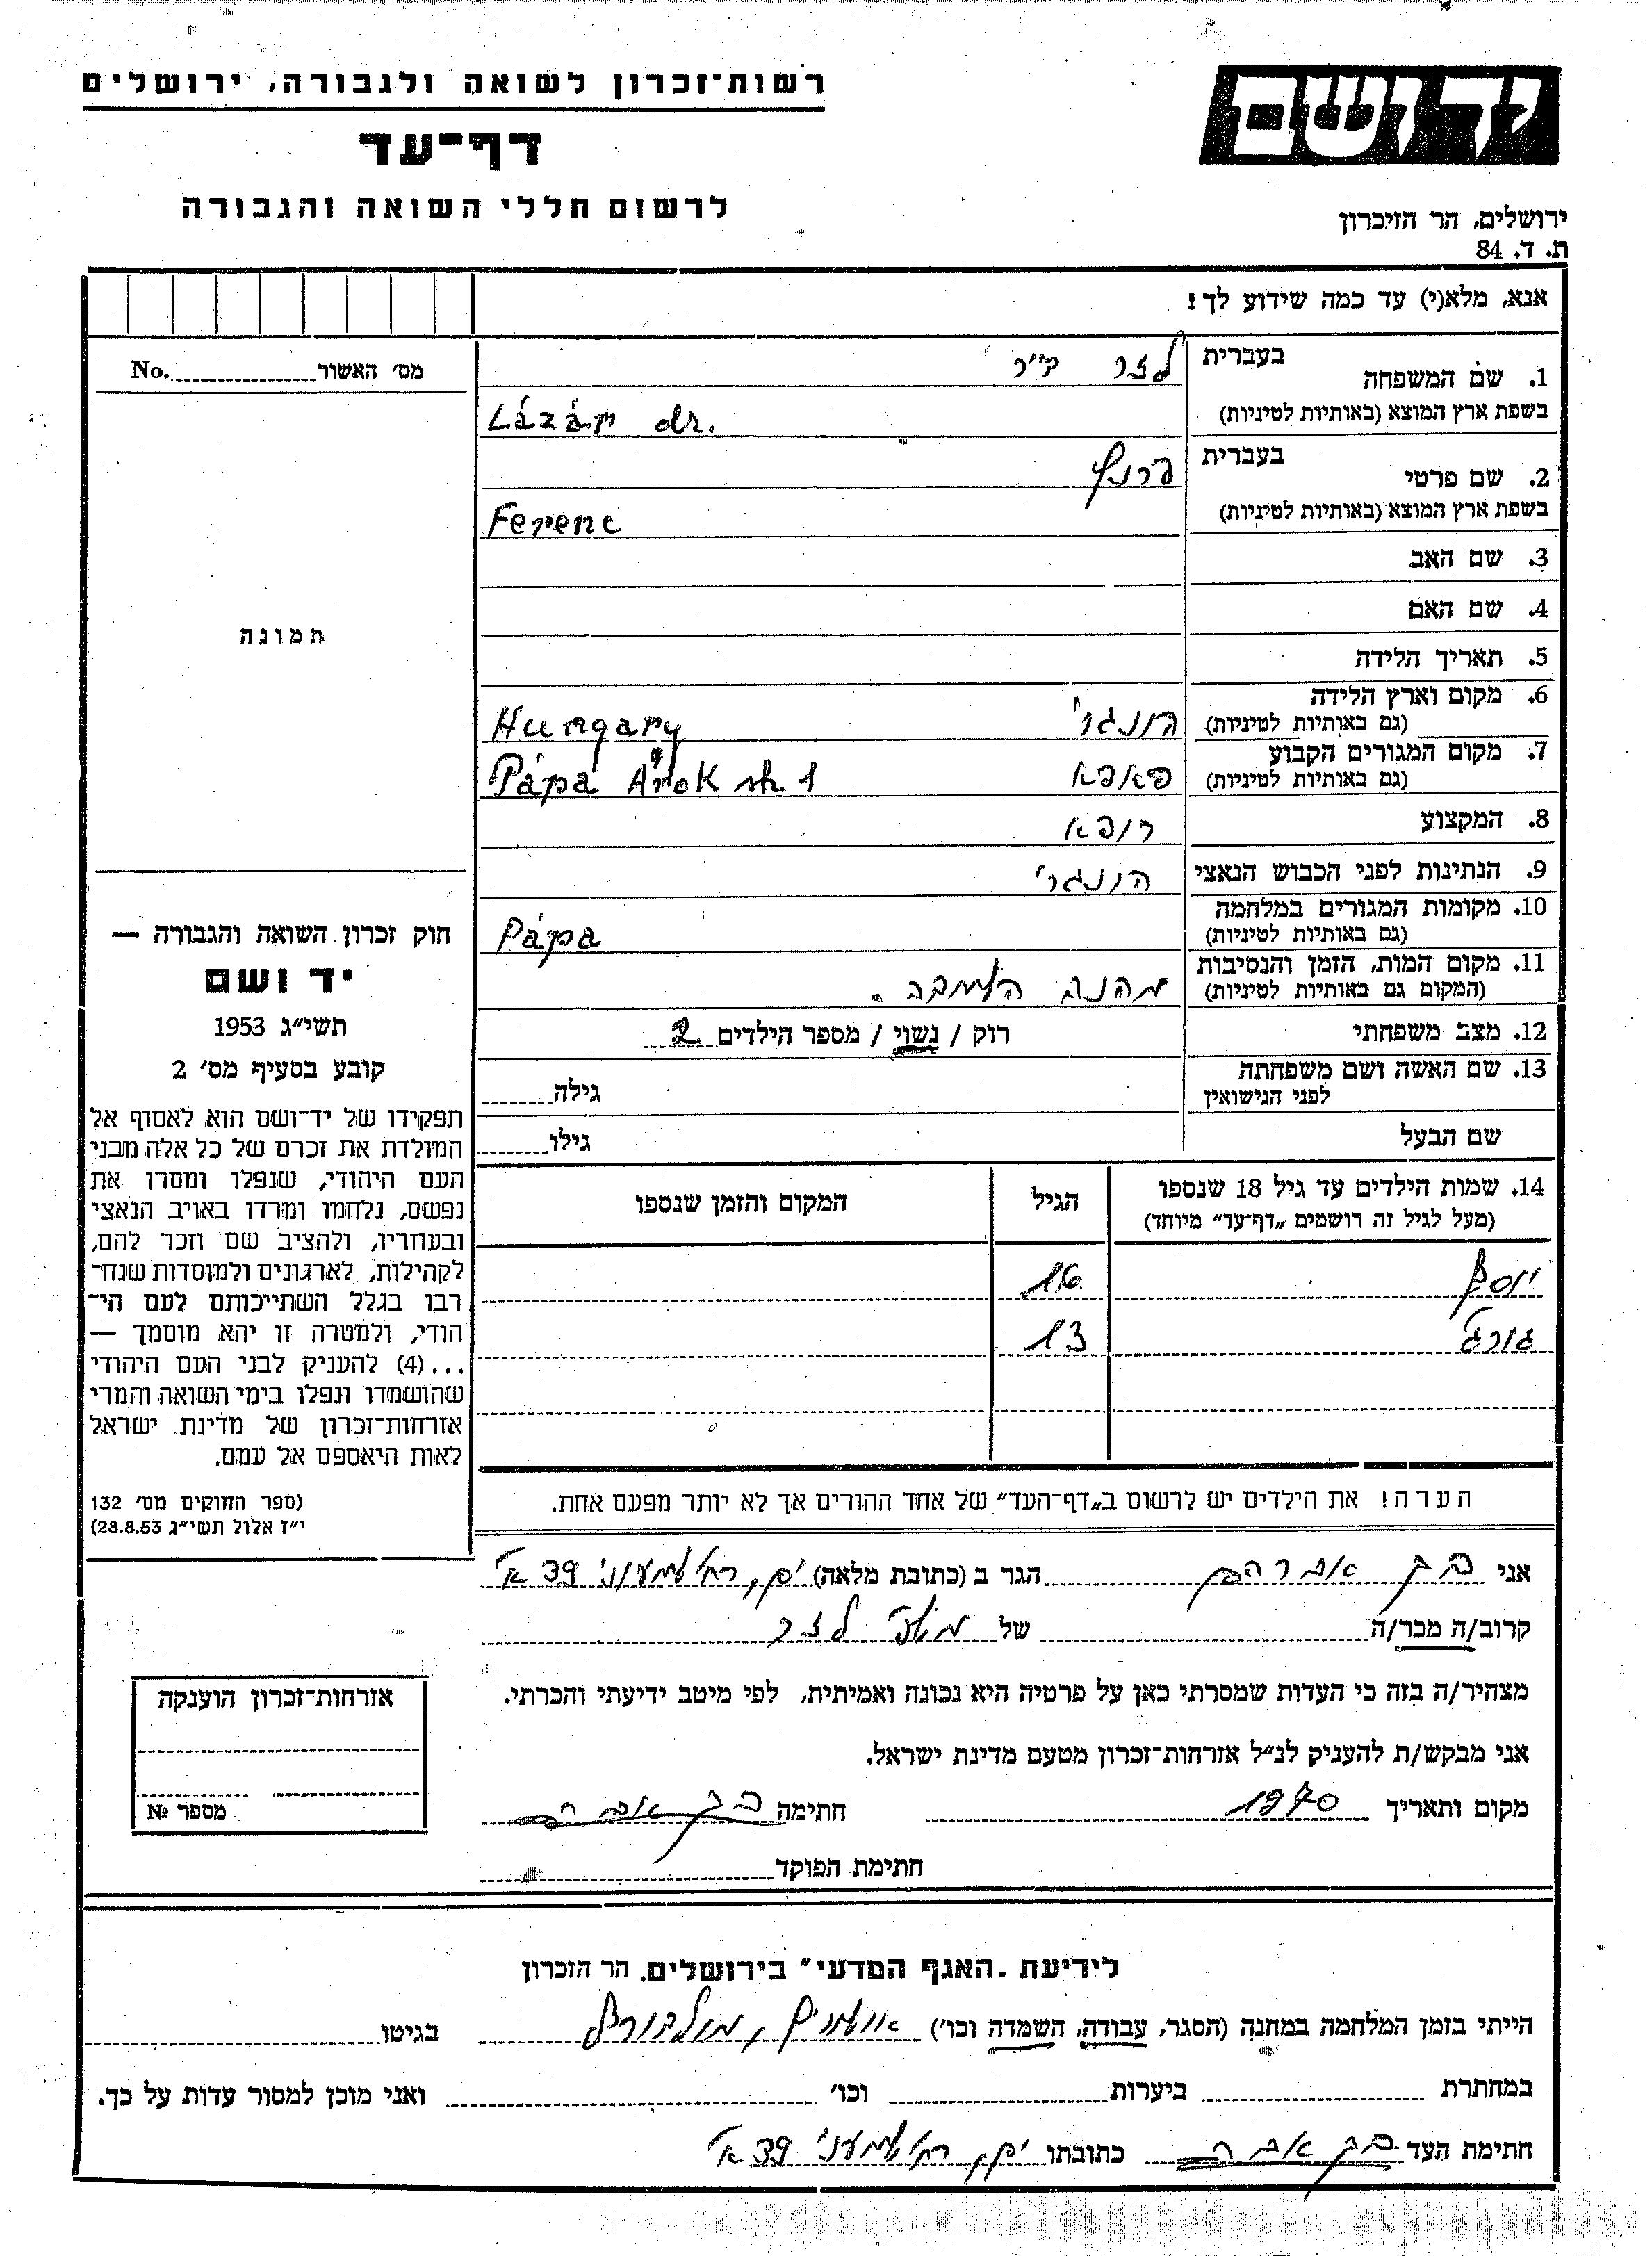 רשות־זכרון לשואה ולגבורה, ירושלים
דף־עד
לרשום חללי השואה והגבורה
ידושם
ירושלים, הר הזיכרון
ת. ד. 84
אנא, מלא(י) עד כמה שידוע לך!
מס׳ האשור No.
תמונה
1. שם המשפחה
בעברית לזר
בשפת ארץ המוצא (באותיות לטיניות) Lázár dr.
2. שם פרטי
בעברית פרנץ
בשפת ארץ המוצא (באותיות לטיניות) Ferenc
3. שם האב
4. שם האם
5. תאריך הלידה
6. מקום וארץ הלידה
(גם באותיות לטיניות) הונגרי Hungary
7. מקום המגורים הקבוע
(גם באותיות לטיניות) פאפא Pápa Árok
8. המקצוע רופא
9. הנתינות לפני הכבוש הנאצי הונגרי
10. מקומות המגורים במלחמה
(גם באותיות לטיניות) Pápa
11. מקום המות, הזמן והנסיבות
(המקום גם באותיות לטיניות) מחנה השמדה.
12. מצב משפחתי רוק / נשוי / מספר הילדים 2
13. שם האשה ושם משפחתה
לפני הנישואין גילה
שם הבעל גילו
14. שמות הילדים עד גיל 18 שנספו
(מעל לגיל זה רושמים „דף־עד״ מיוחד)
הגיל
המקום והזמן שנספו
יוסף 16
גורג 13
הערה! את הילדים יש לרשום ב„דף־העד״ של אחד ההורים אך לא יותר מפעם אחת.
חוק זכרון השואה והגבורה —
יד ושם
תשי״ג 1953
קובע בסעיף מס׳ 2
תפקידו של יד־ושם הוא לאסוף אל
המולדת את זכרם של כל אלה מבני
העם היהודי, שנפלו ומסרו את
נפשם, נלחמו ומרדו באויב הנאצי
ובעוזריו, ולהציב שם וזכר להם,
לקהילות, לארגונים ולמוסדות שנח־
רבו בגלל השתייכותם לעם הי־
הודי, ולמטרה זו יהא מוסמך —
...(4) להעניק לבני העם היהודי
שהושמדו ונפלו בימי השואה והמרי
אזרחות־זכרון של מדינת ישראל
לאות היאספם אל עמם.
(ספר החוקים מס׳ 132
י״ז אלול תשי״ג 28.8.53)
אני אברהם הגר ב (כתובת מלאה) שמעוני 39 א׳
קרוב/ה מכר/ה של לזר
מצהיר/ה בזה כי העדות שמסרתי כאן על פרטיה היא נכונה ואמיתית, לפי מיטב ידיעתי והכרתי.
אני מבקש/ת להעניק לנ״ל אזרחות־זכרון מטעם מדינת ישראל.
מקום ותאריך 1970 חתימה
חתימת הפוקד
אזרחות־זכרון הוענקה
מספר №
לידיעת „האגף המדעי״ בירושלים, הר הזכרון
הייתי בזמן המלחמה במחנה (הסגר, עבודה, השמדה וכו׳) בגיטו
במחתרת ביערות וכו׳ ואני מוכן למסור עדות על כך.
חתימת העד כתובתו שמעוני 39 א׳